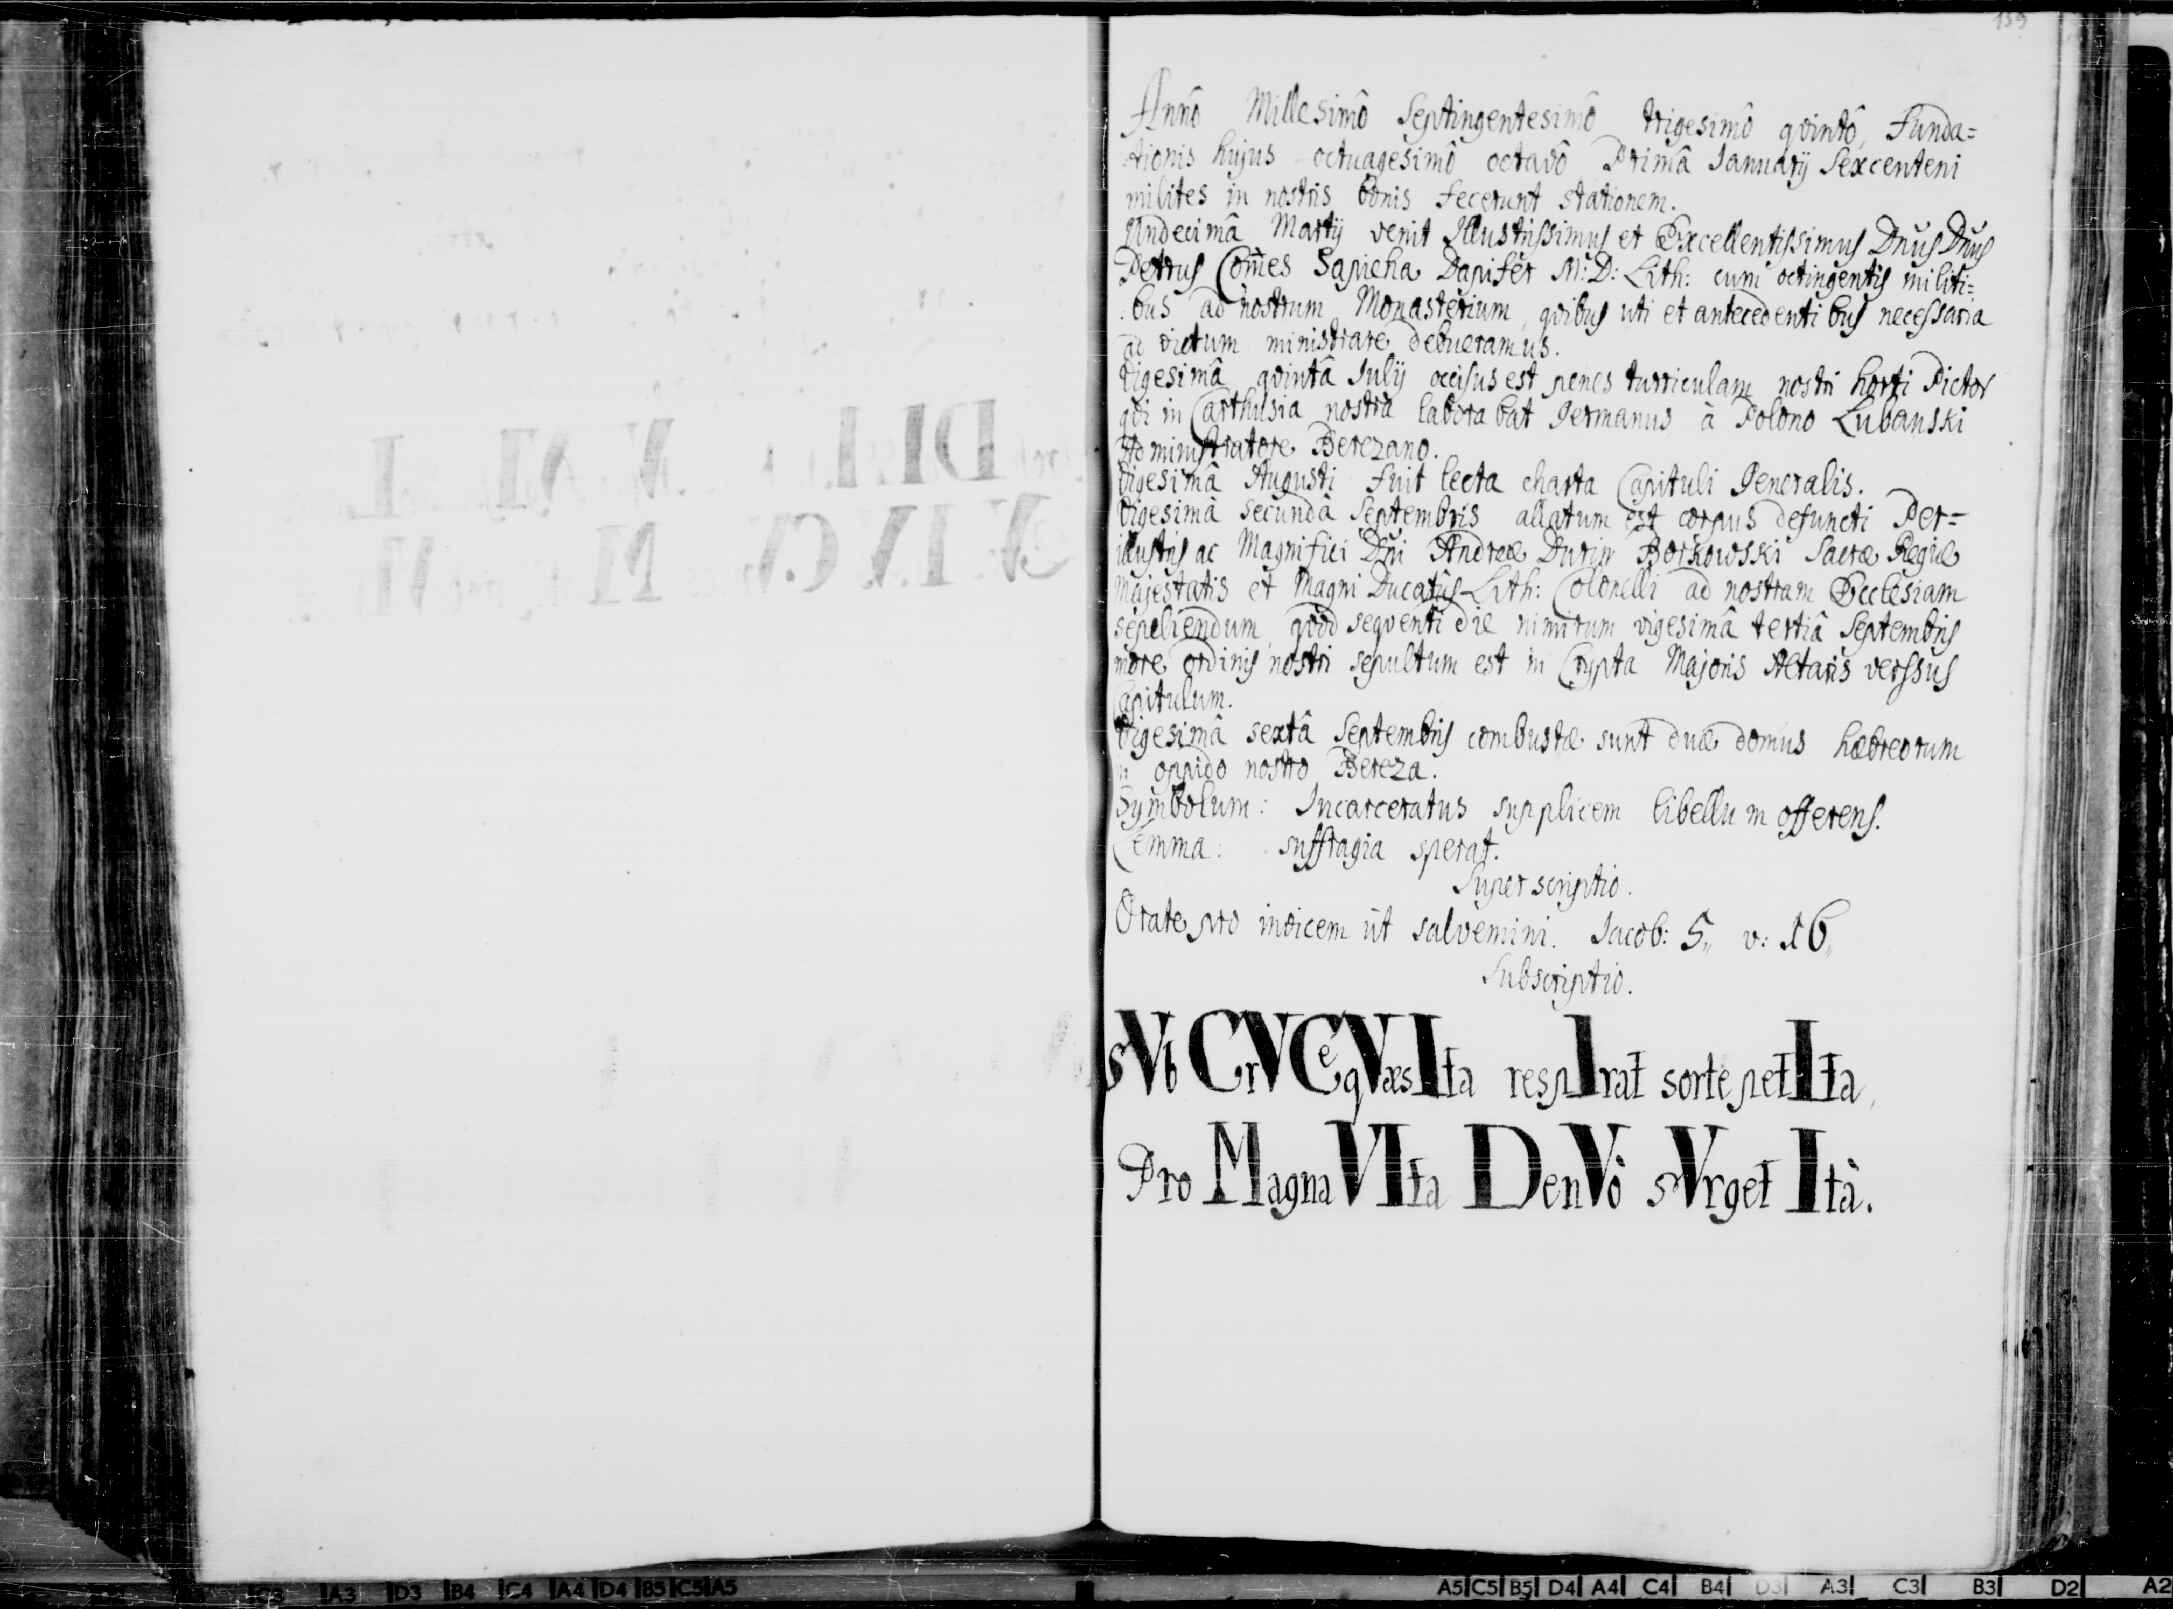 139
Annô Millesimô Septingentesimô trigesimô qvintô, Funda=
tionis hujus octuagesimô octavô Primâ Januarÿ Sexcenteni
milites in nostris bonis fecerunt stationem.
Undecimâ Martÿ venit Illustrissimus et Excellentissimus Dnus Dnus
Petrus Comes Sapieha Dapifer M: D: Lith: cum octingentis militi=
bus ad nostrum Monasterium, qvibus uti et antecedentibus necessaria
ad victum ministrare debueramus.
Vigesimâ qvintâ Julÿ occisus est penes turriculam nostri horti Pictor
qvi in Carthusia nostra laborabat Germanus à Polono Lubanski
Administratore Berezano.
Vigesimâ Augusti fuit lecta charta Capituli Generalis.
Vigesimâ secundâ Septembris allatum est corpus defuncti Per=
illustris ac Magnifici Dni Andreæ Borkowski Sacræ Regiæ
Majestatis et Magni Ducatûs Lith: Colonelli ad nostram Ecclesiam
sepeliendum, qvod seqventi die nimirum vigesimâ tertiâ Septembris
more ordinis nostri sepultum est in Crypta Majoris Altaris verssus
Capitulum.
Vigesimâ sextâ Septembris combustæ sunt duæ domus hæbreorum
in oppido nostro Bereza.
Symbolum: Incarceratus supplicem libellum offerens.
Lemma: suffragia sperat.
Superscriptio.
Orate pro invicem ut salvemini. Jacob: 5,, v: 16,,
Subscriptio.
sVb CrVCe qVæsIta respIrat sorte petIta,
Pro Magna VIta DenVò sVrget Ità.
C3 A3 D3 B4 C4 A4 D4 B5 C5 A5
A5 C5 B5 D4 A4 C4 B4 D3 A3 C3 B3 D2 A2